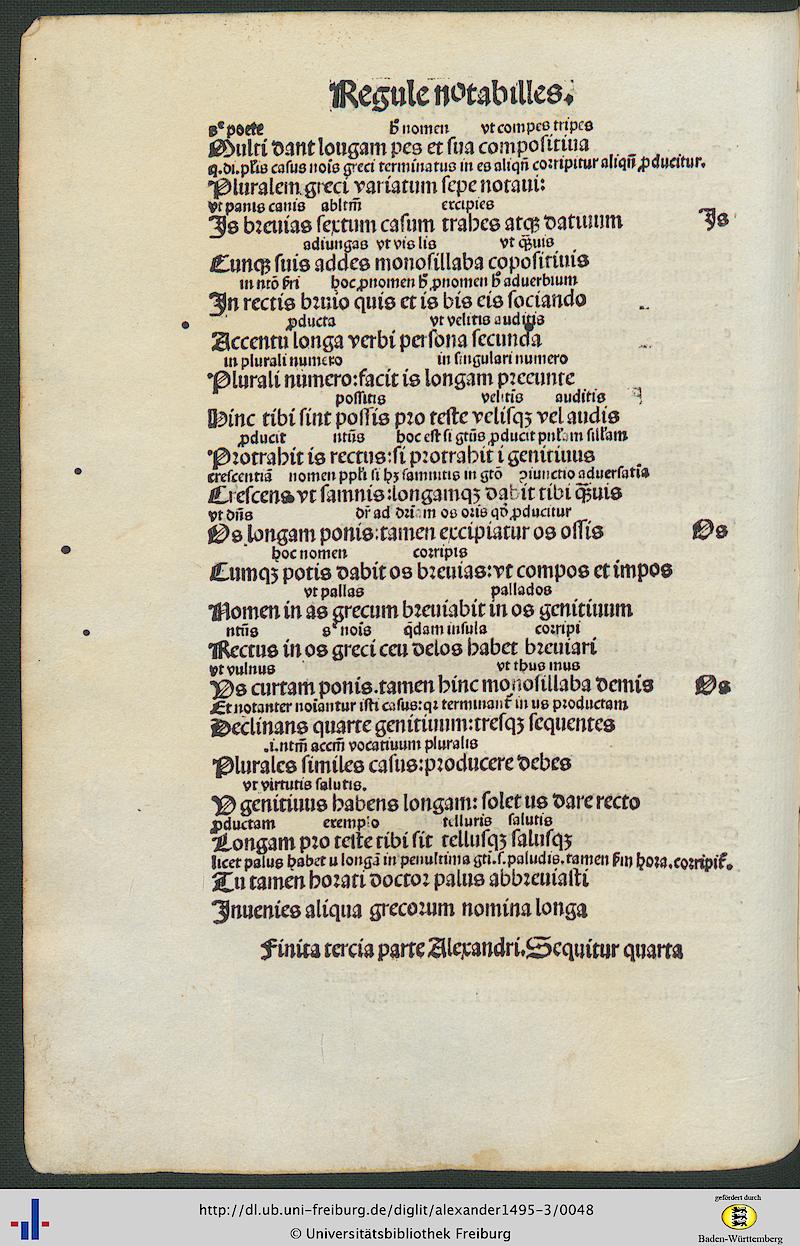 Regule notabilles.
sᵉ poete h̄ nomen vt compes tripes
Multi dant longam pes et sua compositiua
q.di. pl̄is casus nois greci terminatus in es aliqn̄ corripitur aliqn̄ ꝓducitur.
Pluralem greci variatum sepe notaui:
vt panis canis abltm̄ excipies
Is breuias sextum casum trahes atqꝫ datiuum Is
adiungas vt vis lis vt q̄uis
Cunqꝫ suis addes monosillaba cōpositiuis
in ntō hoc ꝓnomen h̄ ꝓnomen h̄ aduerbium
In rectis bruio quis et is bis cis sociando
ꝓducta vt velitis auditis
Accentu longa verbi persona secunda
in plurali numero in singulari numero
Plurali numero:facit is longam preeunte
possitis velitis auditis
Hinc tibi sint possis pro teste velisqꝫ vel audis
ꝓducit ntūs hoc est si gtūs ꝓducit
Protrahit is rectus:si protrahit i genitiuus
crescentiā nomen ppl̄i si hꝫ samnitis in gtō aduersatīa
Crescens vt samnis:longamqꝫ dabit tibi q̄uis
vt dn̄s os oris qō ꝓducitur
Os longam ponis:tamen excipiatur os ossis Os
hoc nomen corripis
Cumqꝫ potis dabit os breuias:vt compos et impos
vt pallas pallados
Nomen in as grecum breuiabit in os genitiuum
ntūs sᵉ nois q̄dam insula corripi
Rectus in os greci ceu delos habet breuiari
vt vulnus vt thus mus
Vs curtam ponis.tamen hinc monosillaba demis Vs
Et notanter noiantur isti casus:qꝛ terminant᷑ in us productam
Declinans quarte genitiuum:tresqꝫ sequentes
.i.ntm̄ accm̄ vocatiuum pluralis
Plurales similes casus:producere debes
vt virtutis salutis.
V genitiuus habens longam: solet us dare recto
ꝓductam exemplo telluris salutis
Longam pro teste tibi sit tellusqꝫ salusqꝫ
licet palus habet u longā in penultima gti.s.paludis.tamen hora.corripit᷑.
Tu tamen horati doctor palus abbreuiasti
Inuenies aliqua grecorum nomina longa
Finita tercia parte Alexandri.Sequitur quarta
http://dl.ub.uni-freiburg.de/diglit/alexander1495-3/0048
© Universitätsbibliothek Freiburg
gefördert durch
Baden-Württemberg